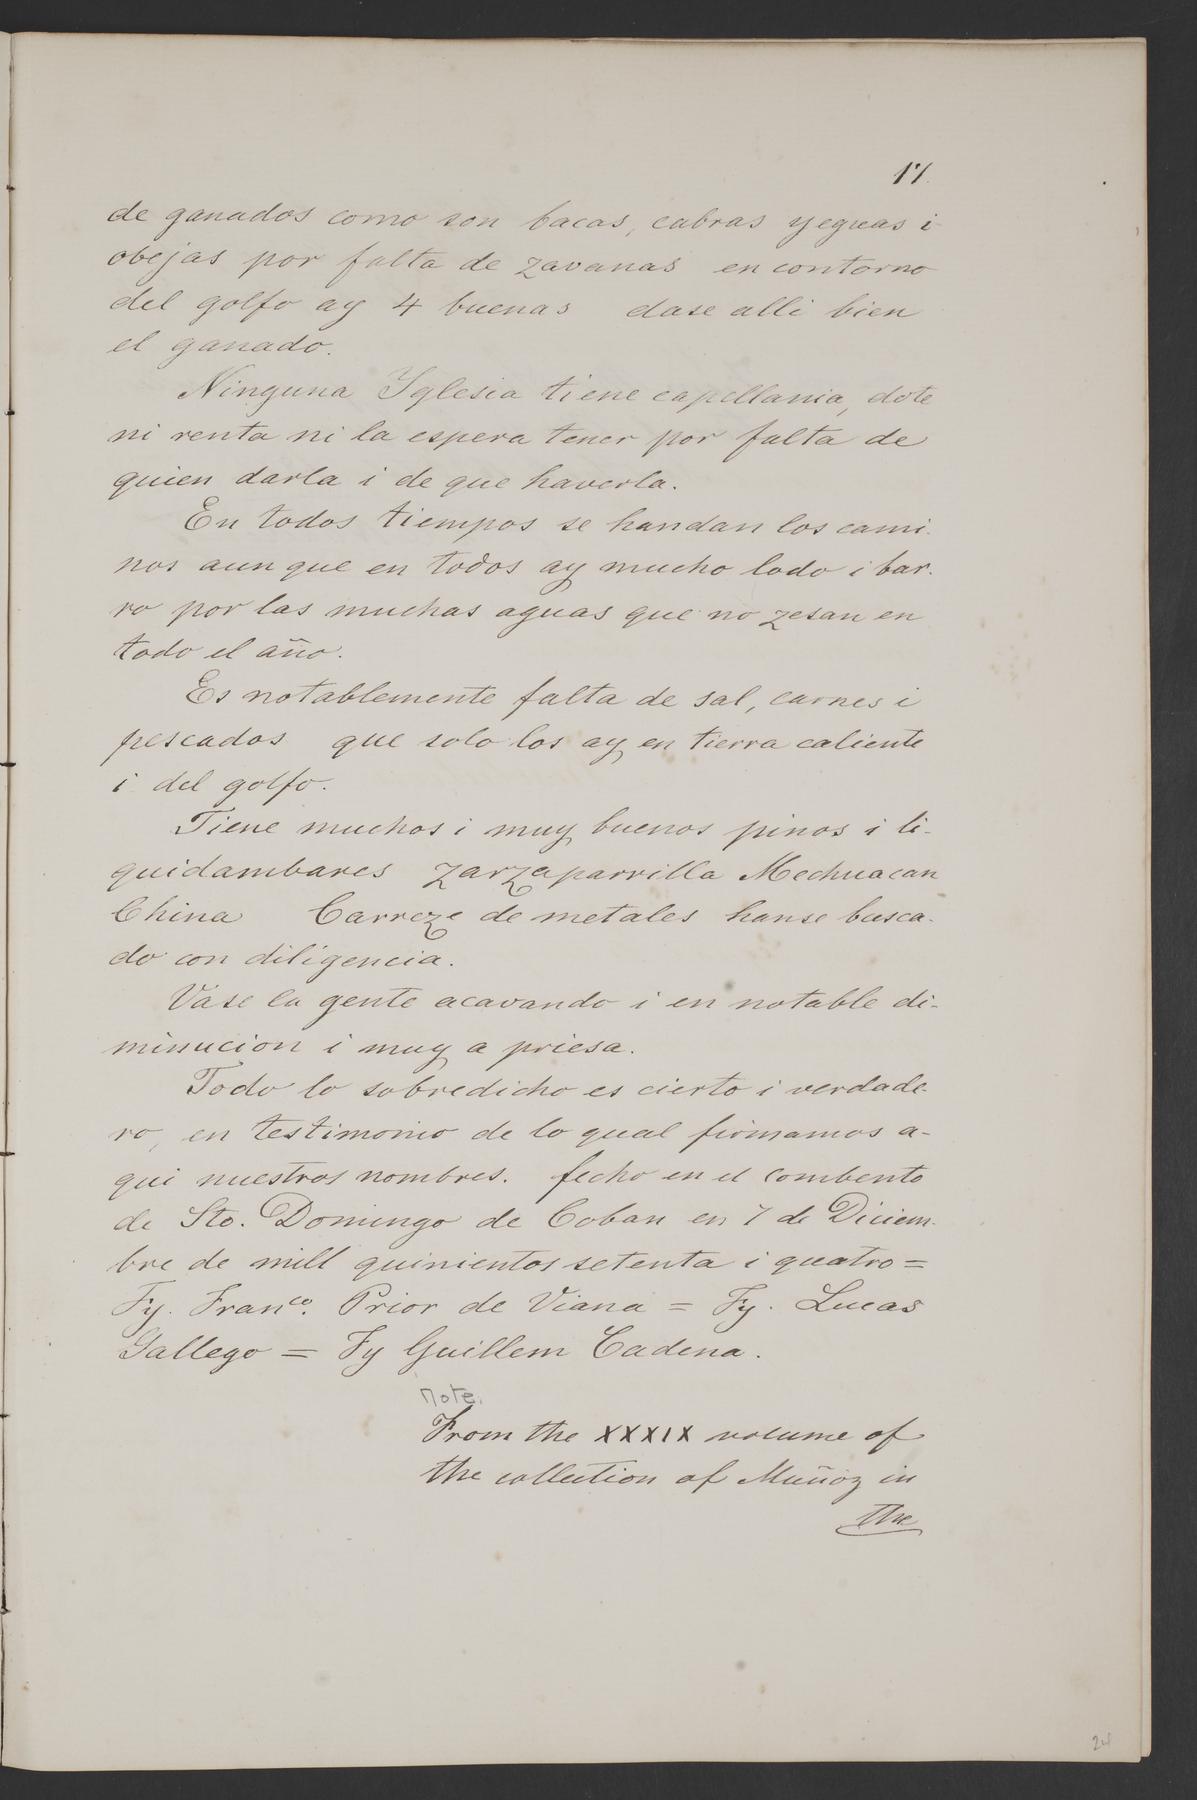 17.
de ganados como son bacas, cabras yeguas i
obejas por falta de zavanas en contorno
del golfo ay 4 buenas dase alli bien
el ganado.
Ninguna Yglesia tiene capellania, dote
ni renta ni la espera tener por falta de
quien darla i de que haverla.
En todos tiempos se handan los cami-
nos aun que en todos ay mucho lodo i bar-
ro por las muchas aguas que no zesan en
todo el año.
Es notablemente falta de sal, carnes i
pescados que solo los ay en tierra caliente
i del golfo.
Tiene muchos i muy buenos pinos i li-
quidambares zarzaparrilla Mechuacan
China Carreze de metales hanse busca-
do con diligencia.
Vase la gente acavando i en notable di-
minucion i muy a priesa.
Todo lo sobredicho es cierto i verdade-
ro, en testimonio de lo qual firmamos a-
qui nuestros nombres. fecho en el combento
de Sto. Domingo de Coban en 7 de Diciem-
bre de mill quinientos setenta i quatro =
Fy. Franco. Prior de Viana = Fy. Lucas
Gallego = Fy Guillem Cadena.
note.
From the XXXIX volume of
the collection of Muñoz in
the
24